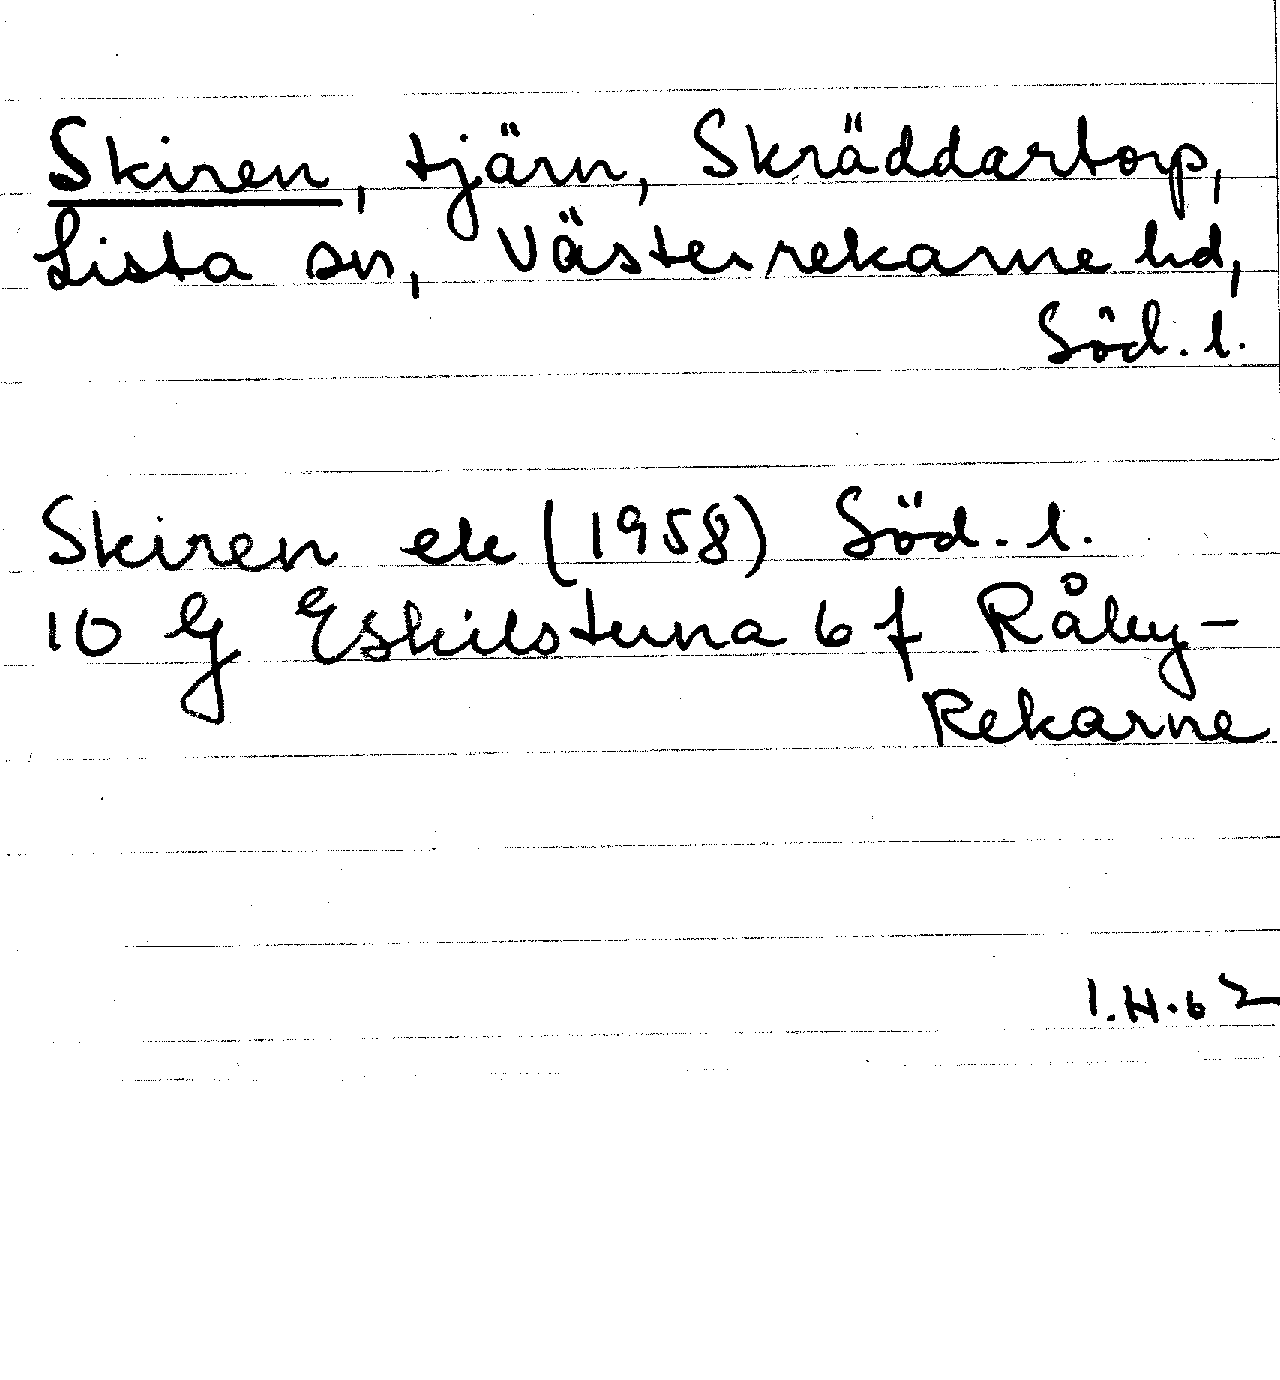 Skiren, tjärn, Skräddartorp,
Lista sn, Västerrekarne hd,
Söd. l.
Skiren ek (1958) Söd. l.
10 G Eskilstuna 6 f Råby-
Rekarne
I.H.62